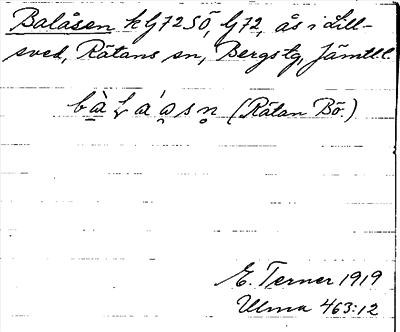 Balåsen k G72 SÖ, G72, ås i Lill-
sved, Rätans sn, Bergs tg, Jämtl. l.
(Rätan Bö.)
E. Terner 1919
Ulma 463:12